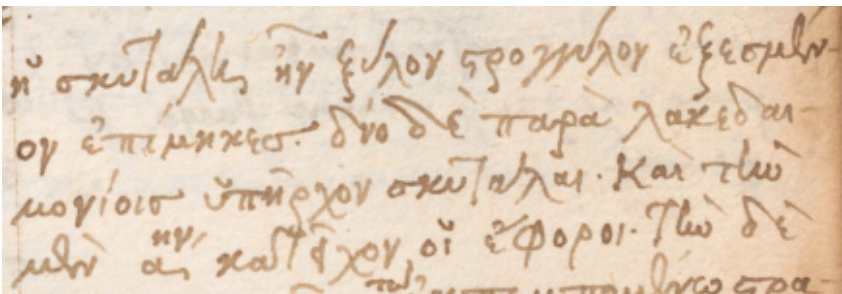 ἡ σκυτάλις ἦν ξύλον στρογγύλον ἐξεσμέν-
ον ἐπίμηκες. δύο δὲ παρὰ λακεδαι-
μονίοις ὑπῆρχον σκυτάλαι. Καὶ τὴν
μὲν κατεῖχον οἱ ἔφοροι. Τὴν δὲ